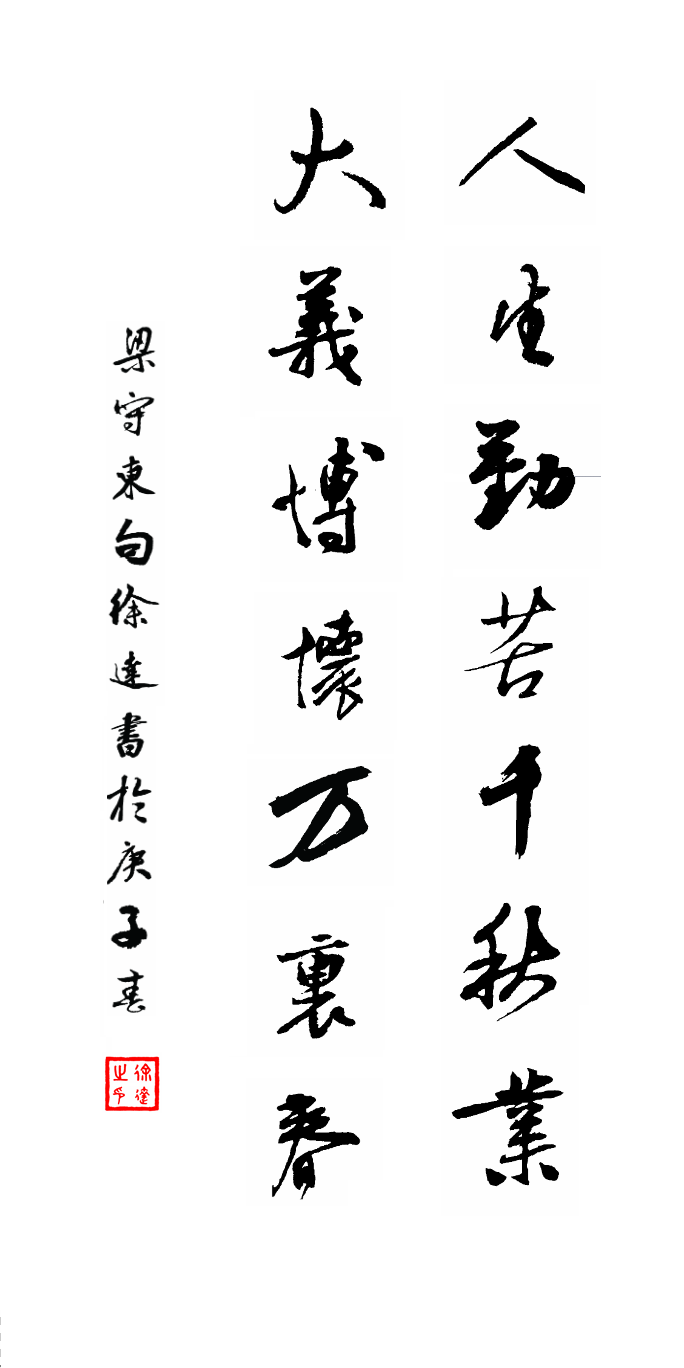 人生勤苦千秋業
大義博懷万裏春
梁守東句徐達書於庚子春
徐達之印